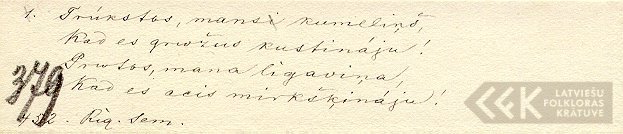 1. Trūkstos, mansi kumeliņš,
Kad es grožus kustināju!
Protos, mana līgaviņa,
Kad es acis mirkšķināju!
379
452. Rig. sem.
LATVIEŠU
FOLKLORAS
KRĀTUVE